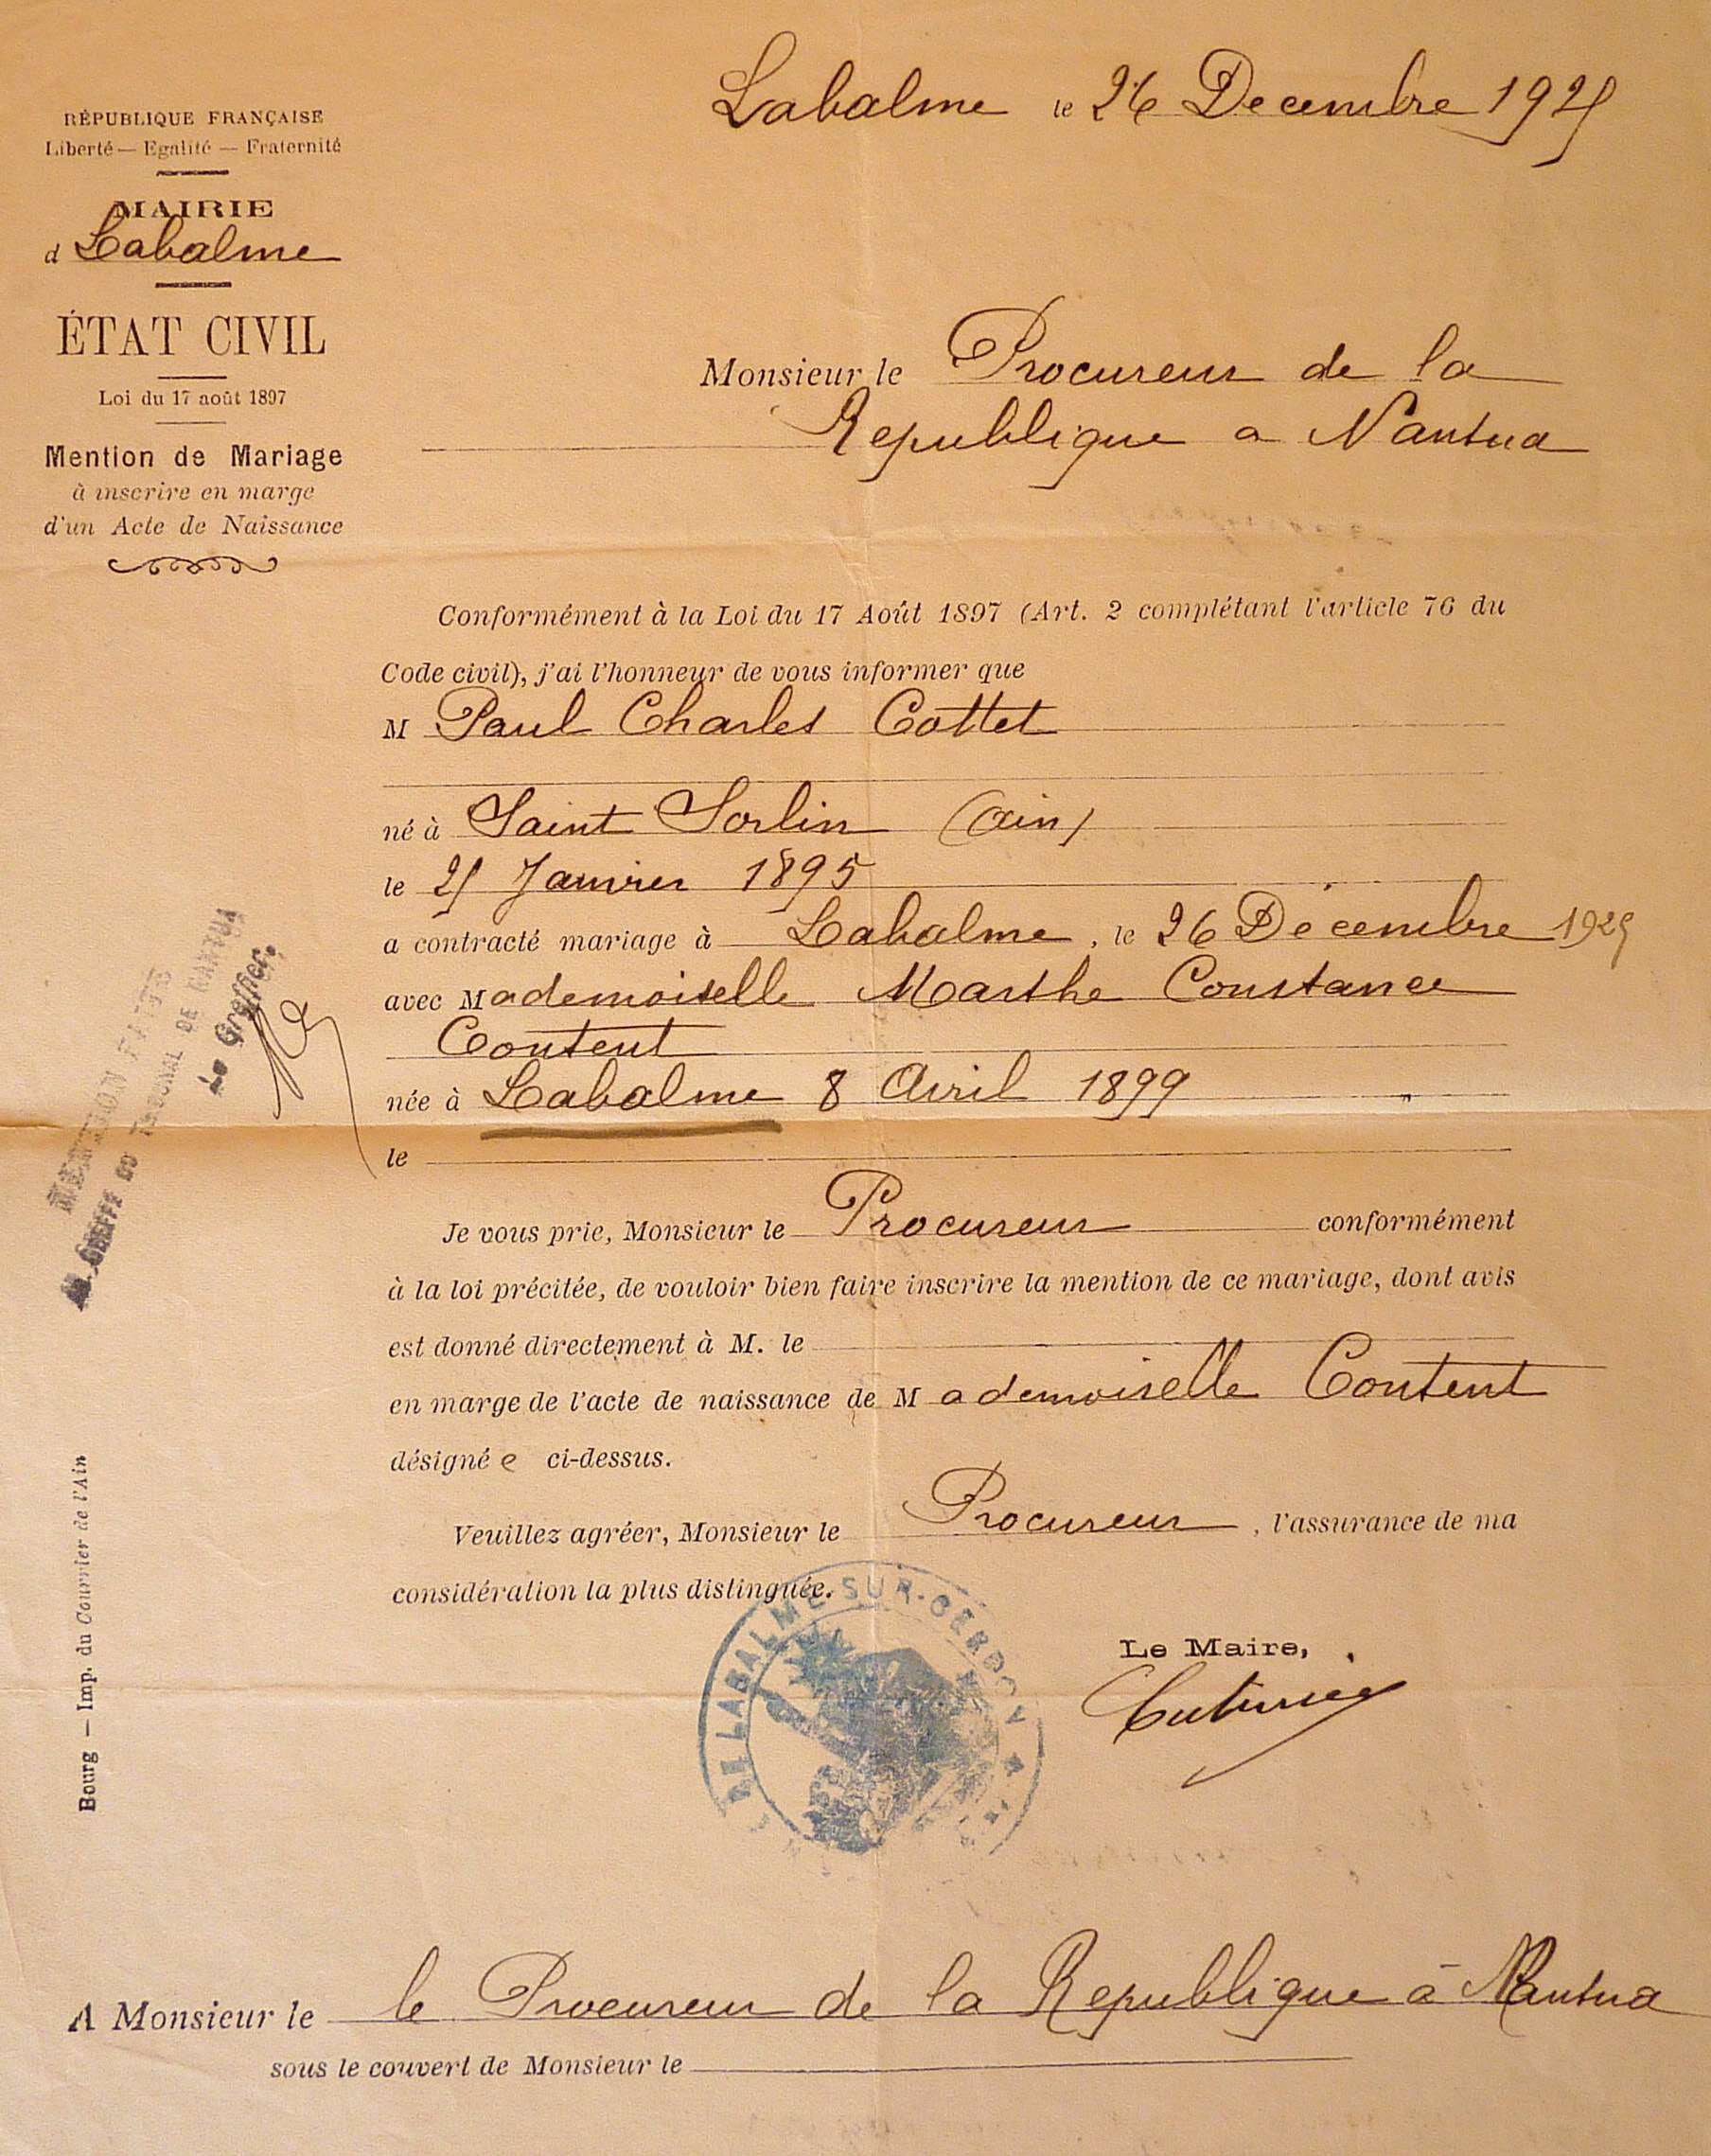 Labalme le 26 Decembre 1925
RÉPUBLIQUE FRANÇAISE
Liberté — Egalité — Fraternité
MAIRIE
d Labalme
ÉTAT CIVIL
Loi du 17 août 1897
Mention de Mariage
à inscrire en marge
d'un Acte de Naissance
Monsieur le Procureur de la
Republique a Nantua
Conformément à la Loi du 17 Août 1897 (Art. 2 complétant l'article 76 du
Code civil), j'ai l'honneur de vous informer que
M Paul Charles Cottet
né à Saint Sorlin (Ain)
le 25 Janvier 1895
a contracté mariage à Labalme, le 26 Décembre 1925
avec Mademoiselle Marthe Constance
Content
née à Labalme 8 Avril 1899
le
Je vous prie, Monsieur le Procureur conformément
à la loi précitée, de vouloir bien faire inscrire la mention de ce mariage, dont avis
est donné directement à M. le
en marge de l'acte de naissance de Mademoiselle Content
désignée ci-dessus.
Veuillez agréer, Monsieur le Procureur, l'assurance de ma
considération la plus distinguée.
Le Maire,
LABALME SUR-CERDON
MENTION FAITE
AU GREFFE DU TRIBUNAL DE NANTUA
Le Greffier,
Bourg — Imp. du Courrier de l'Ain
A Monsieur le le Procureur de la Republique à Nantua
sous le couvert de Monsieur le